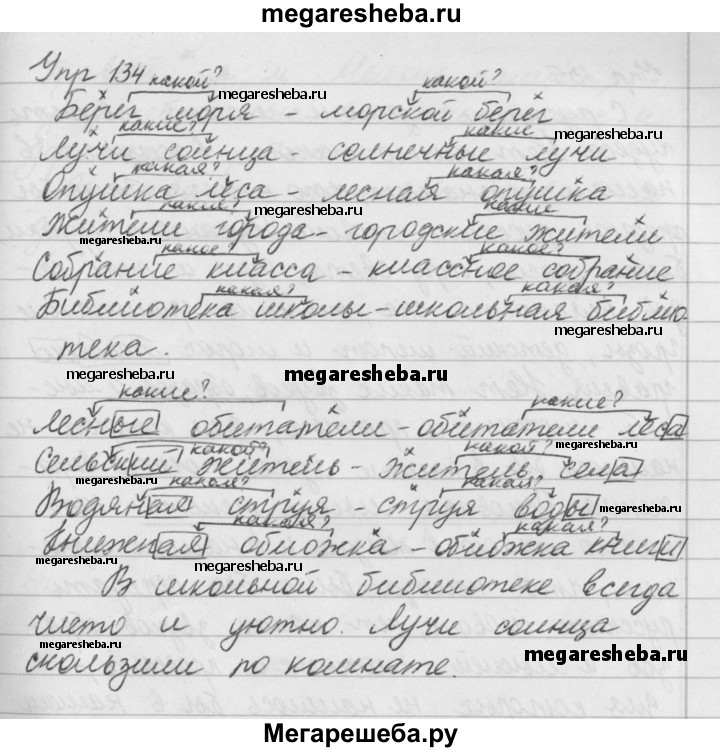 megaresheba.ru
Упр 134 какой? какой?
megaresheba.ru
Берег моря – морской берег
какие? какие megaresheba.ru
Лучи солнца – солнечные лучи
какая? какая?
Опушка леса – лесная опушка
какие? megaresheba.ru какие
Жители города – городские жители
megaresheba.ru какое? какое? megaresheba.ru
Собрание класса – классное собрание
какая? какая?
Библиотека школы – школьная библио-
megaresheba.ru
тека.
megaresheba.ru megaresheba.ru megaresheba.ru
какие? какие?
Лесные обитатели – обитатели леса
megaresheba.ru какой? какой? megaresheba.ru
Сельский житель – житель села
какая? какая?
Водяная струя – струя воды megaresheba.ru
какая? какая?
Книжная обложка – обложка книги
megaresheba.ru megaresheba.ru megaresheba.ru
В школьной библиотеке всегда
чисто и уютно. Лучи солнца
megaresheba.ru megaresheba.ru
скользили по комнате.
Мегарешеба.ру